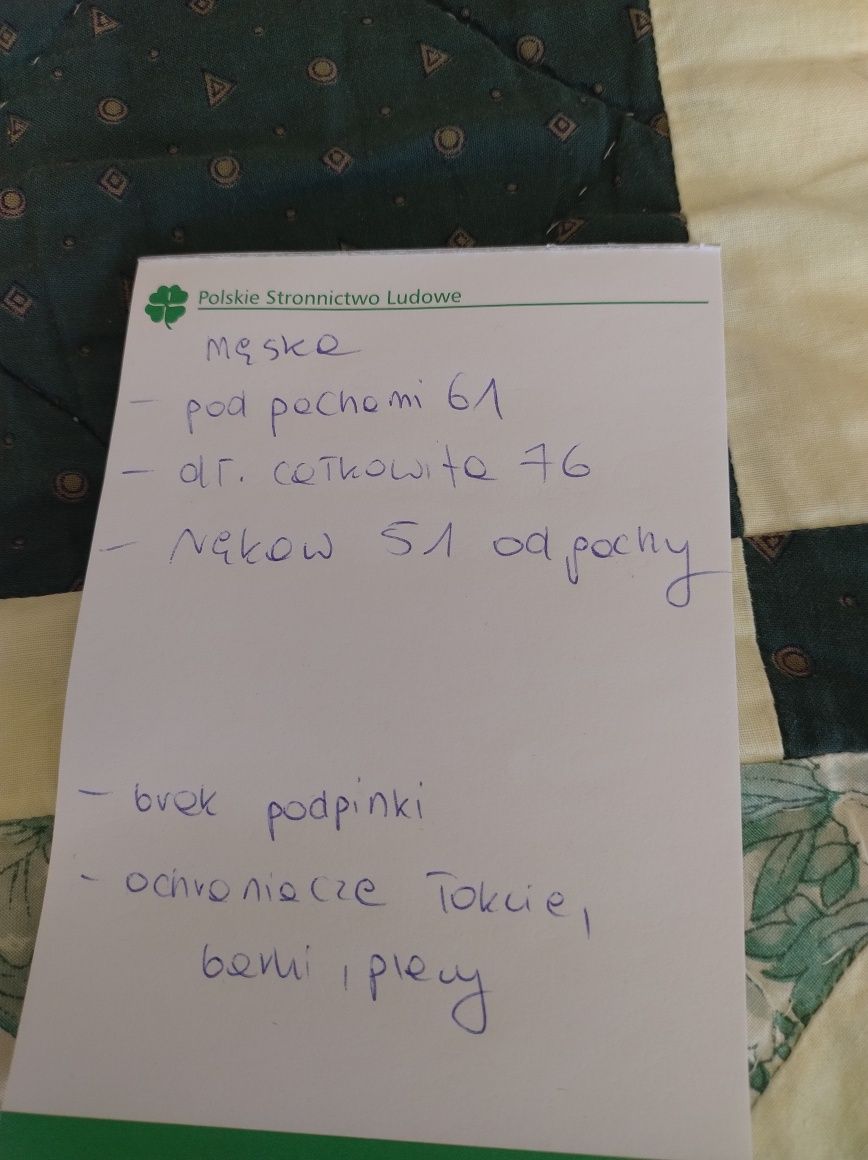 Polskie Stronnictwo Ludowe
męska
- pod pachami 61
- dł. całkowita 76
- rękaw 51 od pachy
- brak podpinki
- ochraniacze łokcie,
barki, plecy